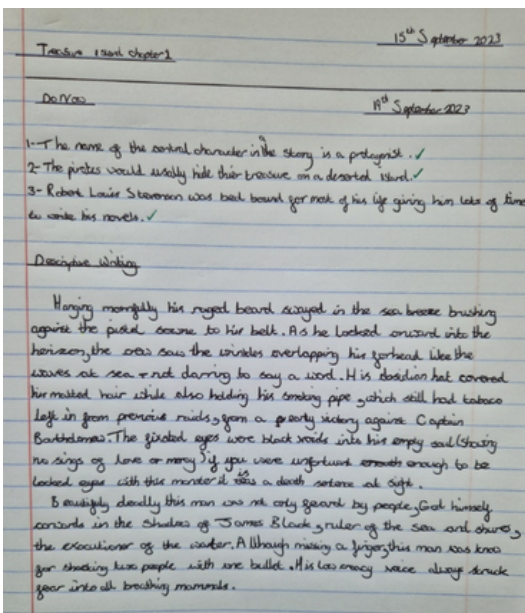 15th September 2023
Treasure island chapter 1
Do Now
19th September 2023
1- The name of the central character in a the story is a protagonist. ✓
2- The pirates would usally hide thier treasure on a deserted island. ✓
3- Robert Louis Stevenson was bed bound for most of his life giving him lots of time
to write his novels. ✓
Descriptive Writing
Hanging his beard swayed in the sea breeze brushing
against the pistol to his belt. As he looked onward into the
horizon, the crew saw the wrinkles overlapping his forhead like the
waves at sea not darring to say a word. His obsidian hat covered
his matted hair while also holding his smoking pipe, which still had tabaco
left in from previous raids, from a victory against Captain
Bartholomew. The eyes were black voids into his empty soul (showing
no sings of love or mercy) if you were unfortunt enough to be
locked eyes with this monster it is a death setence at sight.
Beautifly deadly this man was not only feard by people, God himself
in the shadow of James Black, ruler of the sea and shore,
the executioner of the water. Although missing a finger, this man was know
for shooting two people with one bullet. His voice always struck
fear into all breathing mammals.